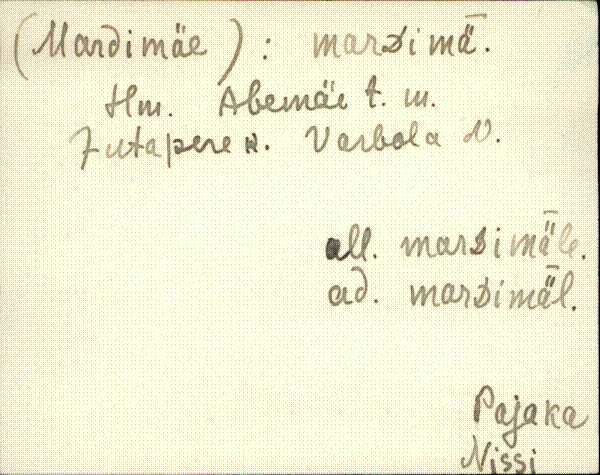 (Mardimäe) : marᴅimǟ.
Hm. Abemäe t. m.
Jutapere k. Varbola v.
all. marᴅimǟle.
ad. marᴅimǟl.
Pajaka
Nissi